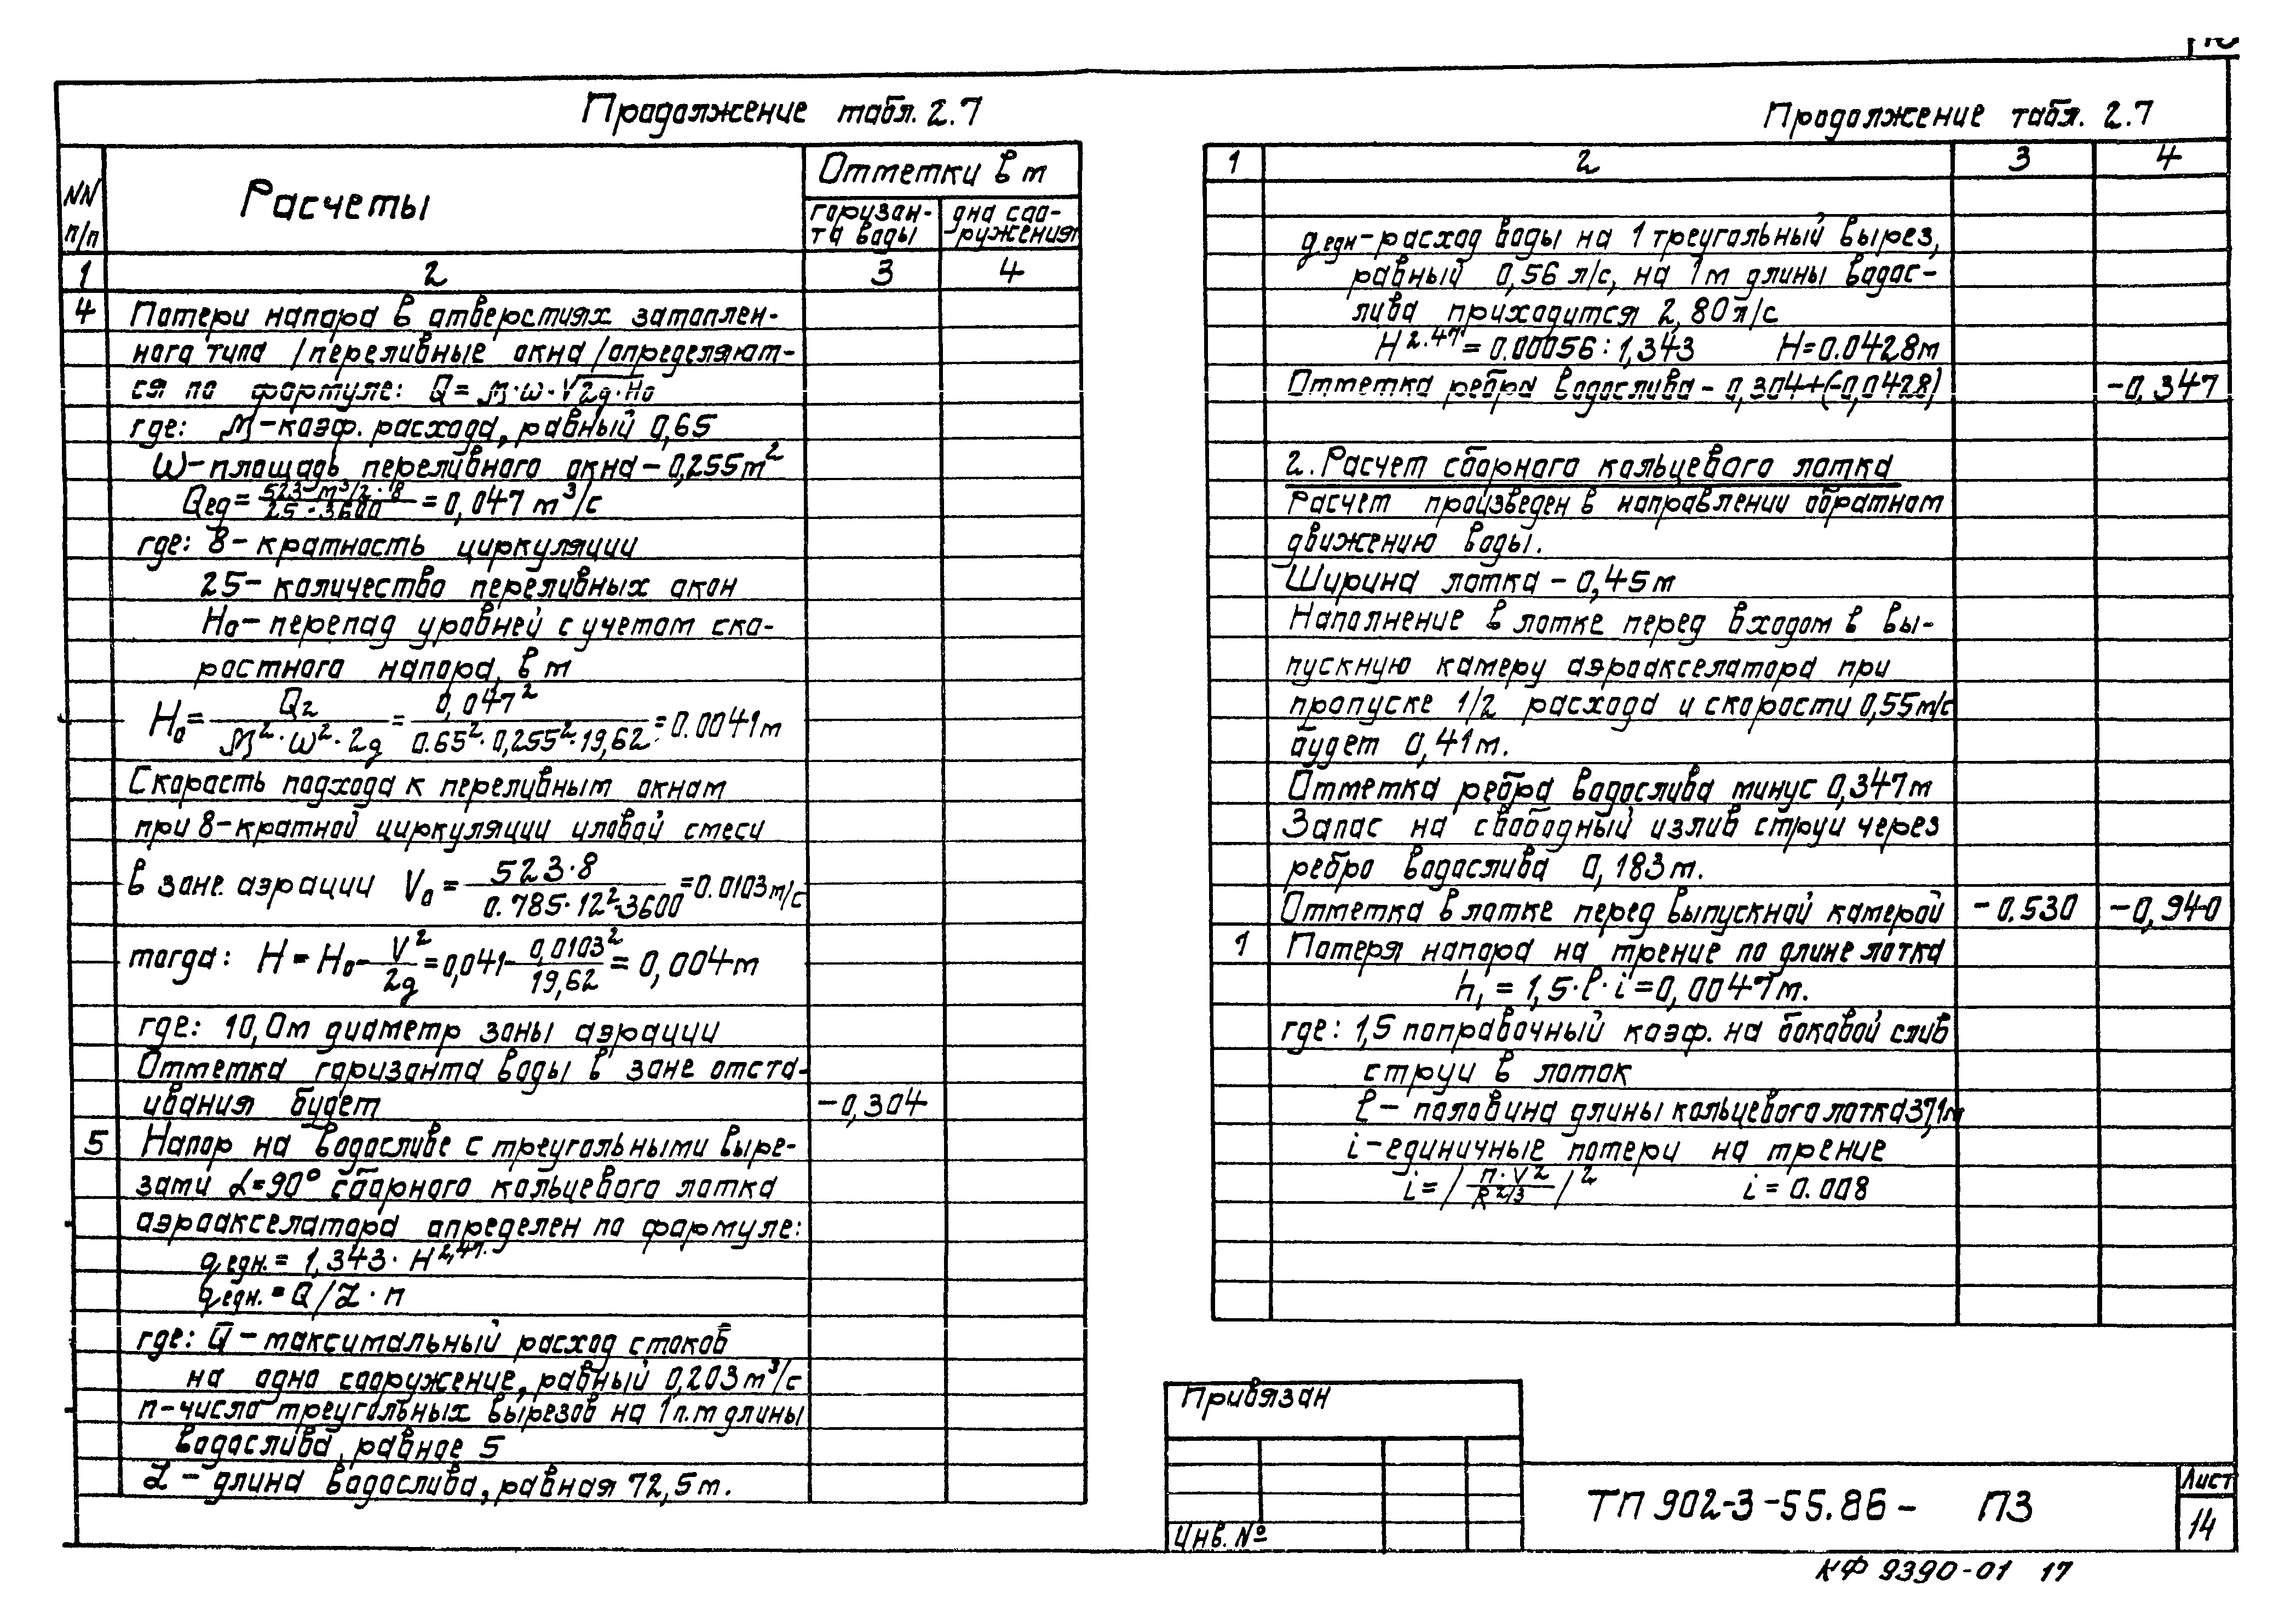 Продолжение табл. 2.7
NN п/п
Расчеты
Отметки в м
горизон-
та воды
дна соо-
ружения
1 2 3 4
4 Потери напора в отверстиях затоплен-
ного типа /переливные окна/определяют-
ся по формуле: Q = M·ω·√2g·H₀
где: M-коэф. расхода, равный 0,65
ω-площадь переливного окна-0,255м²
Qед= 523 м³/г·8 / 25·3600 = 0,047 м³/с
где: 8-кратность циркуляции
25-количество переливных окон
H₀-перепад уровней с учетом ско-
ростного напора, в м
H₀= Q2 / M²·ω²·2g = 0,047² / 0.65²·0,255²·19,62 = 0.0041м
Скорость подхода к переливным окнам
при 8-кратной циркуляции иловой смеси
в зоне аэрации V₀ = 523·8 / 0.785·12²·3600 = 0.0103м/с
тогда: H = H₀- V² / 2g = 0,041- 0,0103² / 19,62 = 0,004м
где: 10,0м диаметр зоны аэрации
Отметка горизонта воды в зоне отста-
ивания будет -0,304
5 Напор на водосливе с треугольными выре-
зами α=90° сборного кольцевого лотка
аэроакселатора определен по формуле:
q едн. = 1,343·H 2,47.
q едн. = Q/L·п
где: Q-максимальный расход стоков
на одно сооружение, равный 0,203м³/с
п-число треугольных вырезов на 1п.м длины
водослива, равное 5
L-длина водослива, равная 72,5м.
Продолжение табл. 2.7
1 2 3 4
q едн-расход воды на 1 треугольный вырез,
равный 0,56 л/с, на 1м длины водос-
лива приходится 2,80л/с
H 2.47 = 0.00056:1,343 H=0.0428м
Отметка ребра водослива-0,304+(-0,0428) -0,347
2. Расчет сборного кольцевого лотка
Расчет произведен в направлении обратном
движению воды.
Ширина лотка-0,45м
Наполнение в лотке перед входом в вы-
пускную камеру аэроакселатора при
пропуске 1/2 расхода и скорости 0,55м/с
будет 0,41м.
Отметка ребра водослива минус 0,347м
Запас на свободный излив струи через
ребро водослива 0,183м.
Отметка в лотке перед выпускной камерой -0.530 -0,940
1 Потеря напора на трение по длине лотка
h₁ = 1,5·ℓ·i = 0,0047м.
где: 1,5 поправочный коэф. на боковой слив
струи в лоток
ℓ-половина длины кольцевого лотка37,1м
i-единичные потери на трение
i = / п·V² / R 2/3 / ² i = 0.008
Привязан
Инв. №
ТП 902-3-55.86- ПЗ
Лист
14
КФ 9390-01 17